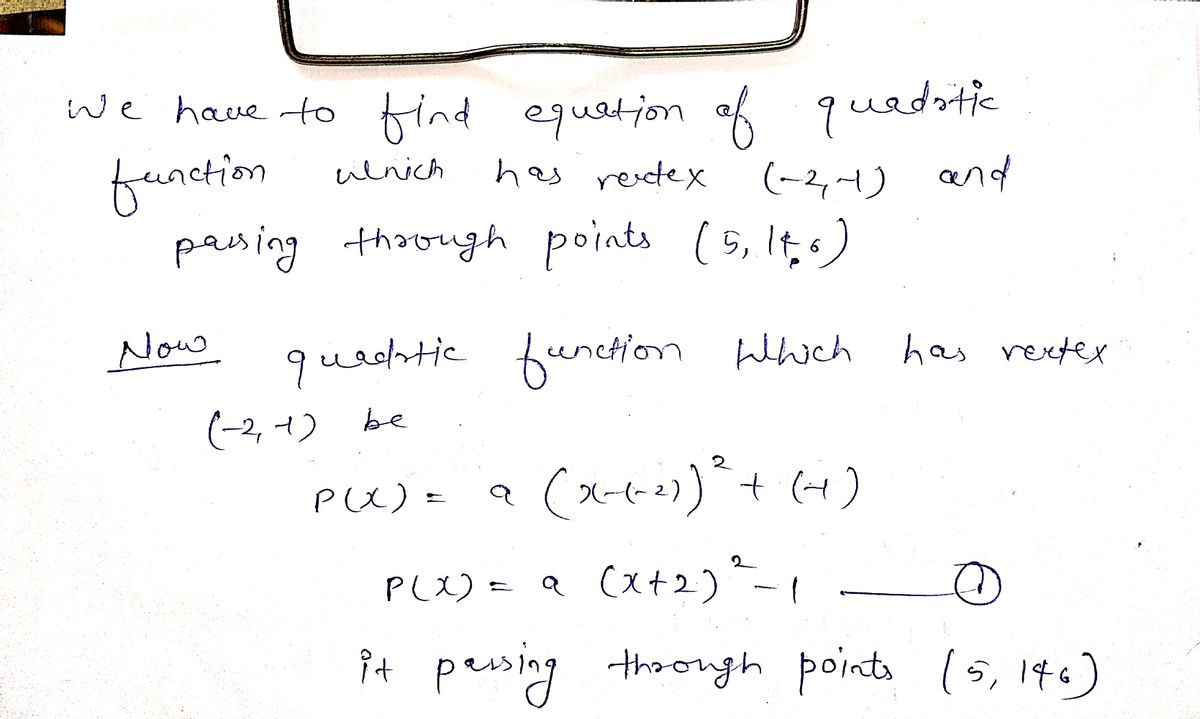 We have to find equation of quadratic
function which has vertex (-2,-1) and
passing through points (5, 146)
Now quadratic function which has vertex
(-2,-1) be
P(x) = a (x-(-2))² + (-1)
P(x) = a (x+2)² - 1 —— ①
it passing through points (5, 146)